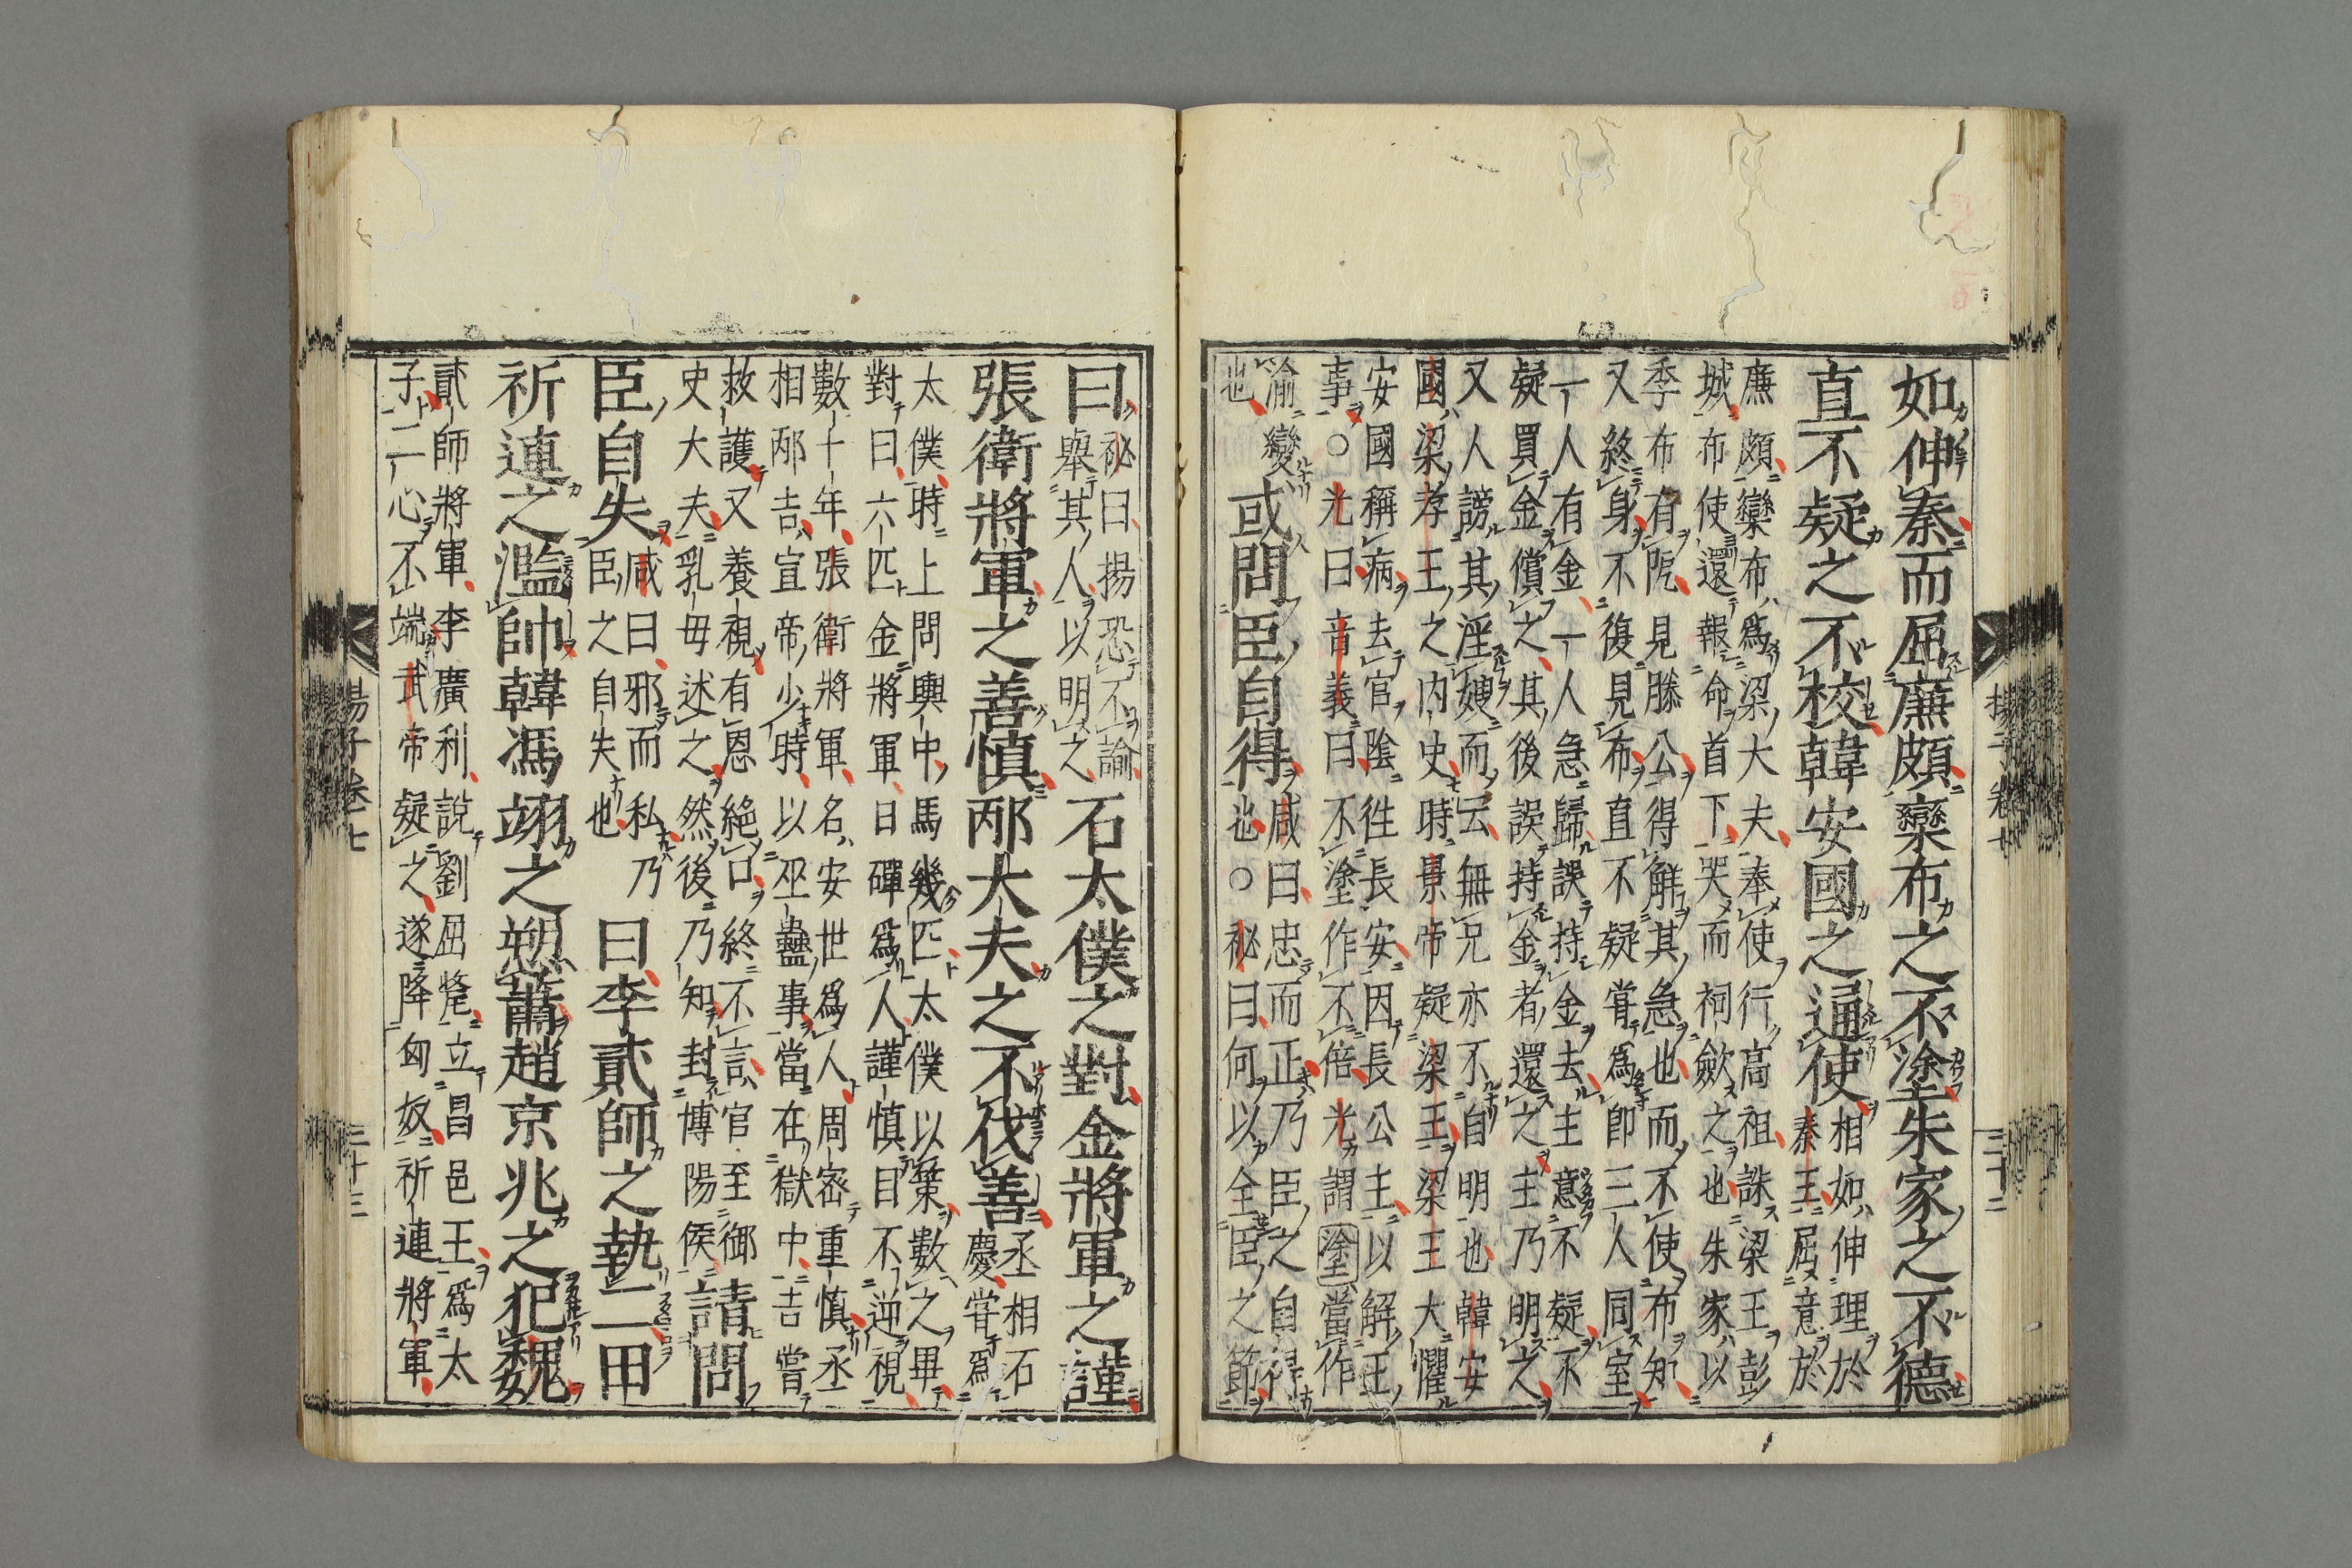 如伸秦而屈廉頗欒布之不塗朱家之不德
直不疑之不校韓安國之通使
相如伸理於
秦王屈意於
廉頗欒布為梁大夫奉使行高祖誅梁王彭
城布使還報命首下哭而祠歛之也朱家以
季布有阨見滕公得解其急也而不使布知
又終身不復見布直不疑甞為郎三人同室
一人有金一人急歸誤持金去主意不疑不
疑買金償之其後誤持金者還之主乃明之
又人謗其淫嫂而云無兄亦不自明也韓安
國梁孝王之內史時景帝疑梁王梁王大懼
安國稱病去官陰徃長安因長公主以解王
事○光曰音義曰不塗作不倍光謂塗當作
渝變
也
或問臣自得
咸曰忠而正乃臣之自得
也○祕曰何以全臣之節
揚子卷七
三十二
曰
祕曰揚恐不諭
舉其人以明之
石太僕之對金將軍之謹
張衛將軍之善慎邴大夫之不伐善
丞相石
慶甞為
太僕時上問輿中馬幾匹太僕以策數之畢
對曰六匹金將軍日磾為人謹慎目不逆視
數十年張衛將軍名安世為人周密重慎丞
相邴吉宣帝少時以巫蠱事當在獄中吉嘗
救護又養視有恩絕口終不言官至御
史大夫乳母述之然後乃知封博陽侯
請問
臣自失
咸曰邪而私乃
臣之自失也
曰李貳師之執二田
祈連之濫帥韓馮翊之愬蕭趙京兆之犯魏
貳師將軍李廣利說劉屈氂立昌邑王為太
子二心不端武帝疑之遂降匈奴祈連將軍
揚子卷七
三十三